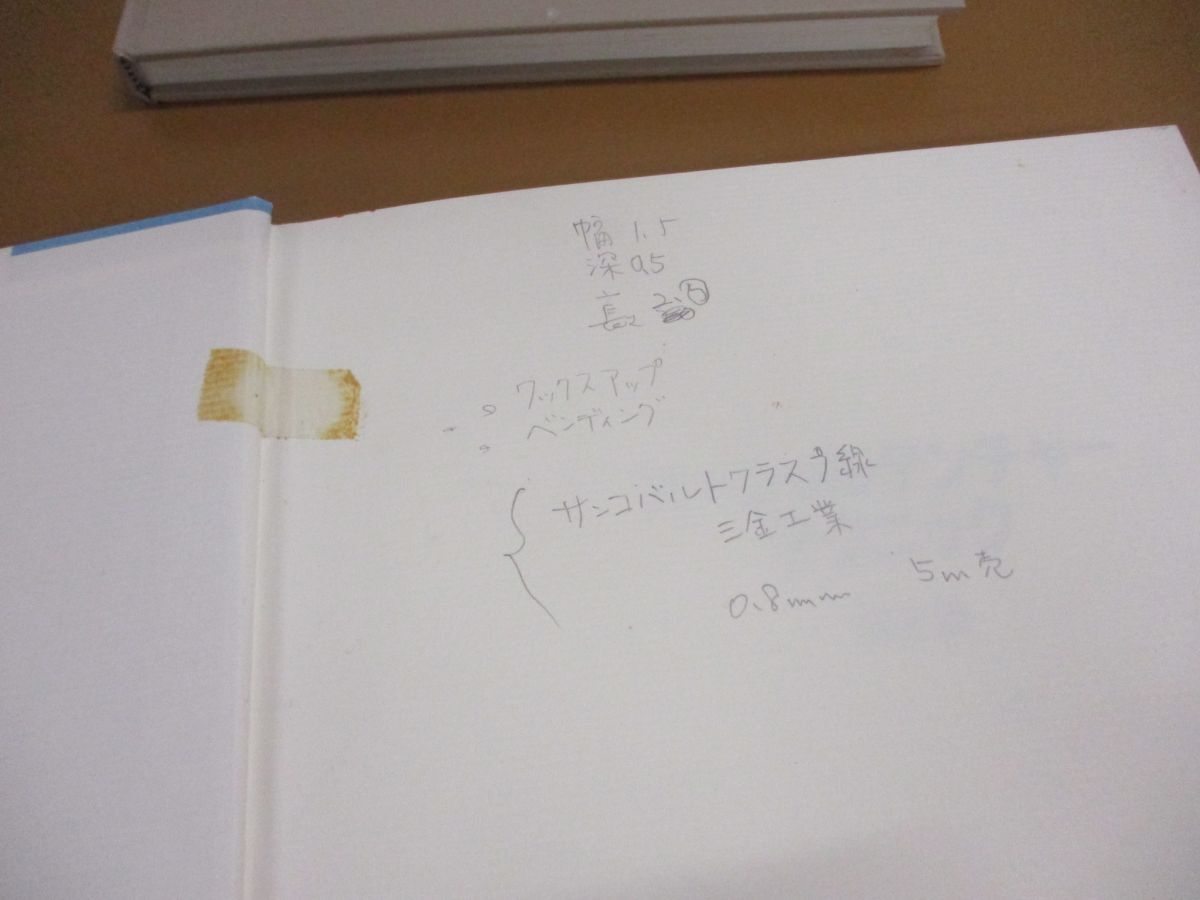 幅 1.5
深 0.5
長 2.
ワックスアップ
ベンディング
サンコバルトクラスプ線
三金工業
0.8mm 5m売